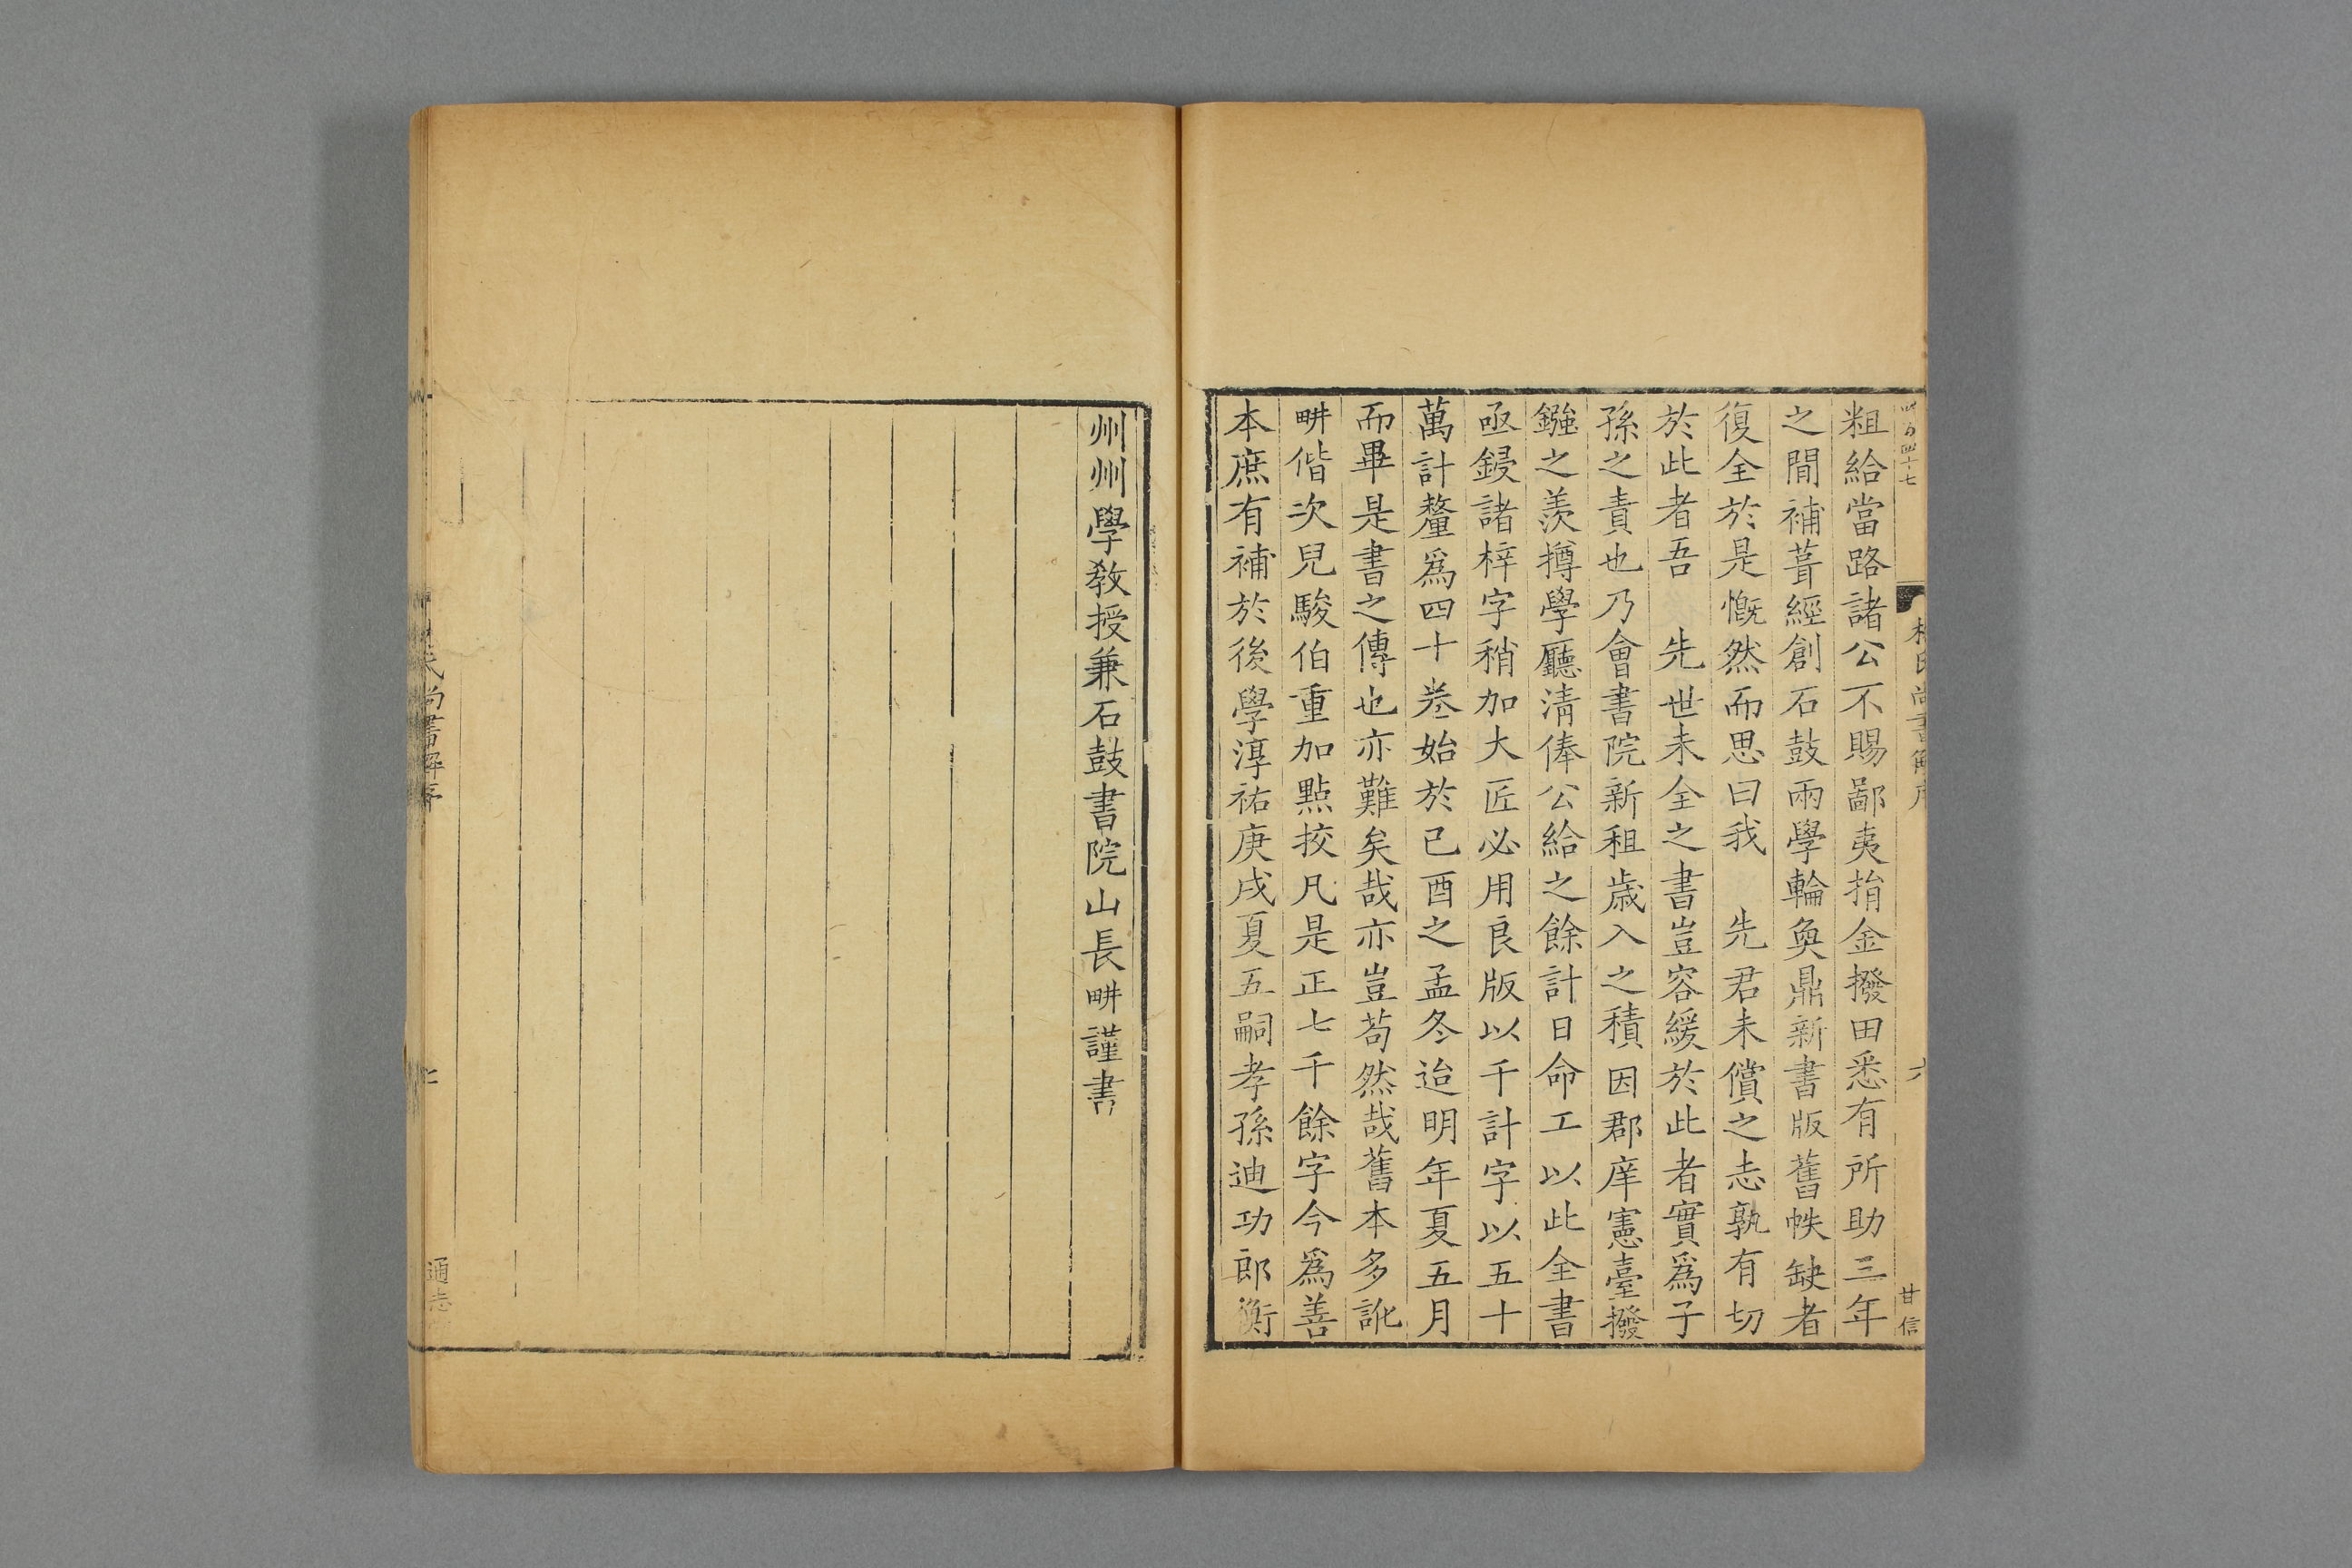 粗給當路諸公不賜鄙夷捐金撥田悉有所助三年
之間補葺經創石鼓兩學輪奐鼎新書版舊帙缺者
復全於是慨然而思曰我　先君未償之志孰有切
於此者吾　先世未全之書豈容緩於此者實爲子
孫之責也乃會書院新租歲入之積因郡庠憲臺撥
鏹之羨撙學廳淸俸公給之餘計日命工以此全書
亟鋟諸梓字稍加大匠必用良版以千計字以五十
萬計釐爲四十卷始於已酉之孟冬迨明年夏五月
而畢是書之傳也亦難矣哉亦豈苟然哉舊本多訛
畊偕次兒駿伯重加點挍凡是正七千餘字今爲善
本庶有補於後學淳祐庚戌夏五嗣孝孫迪功郎衡
甘信
州州學教授兼石鼓書院山長畊謹書
尚書解序
通志